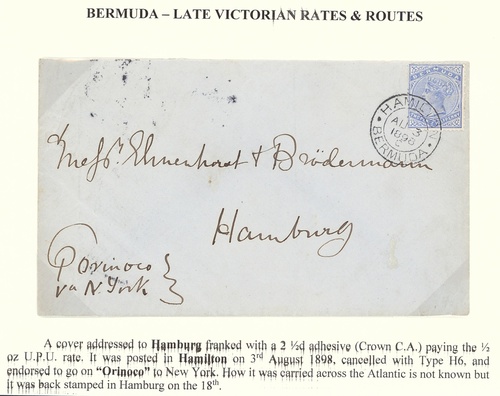 BERMUDA – LATE VICTORIAN RATES & ROUTES
BERMUDA
HAMILTON
AU 3
1898
BERMUDA
Messrs Elmenhorst & Brödermann
Hamburg
p Orinoco
via N. York
A cover addressed to Hamburg franked with a 2 ½d adhesive (Crown C.A.) paying the ½
oz U.P.U. rate. It was posted in Hamilton on 3rd August 1898, cancelled with Type H6, and
endorsed to go on "Orinoco" to New York. How it was carried across the Atlantic is not known but
it was back stamped in Hamburg on the 18th.